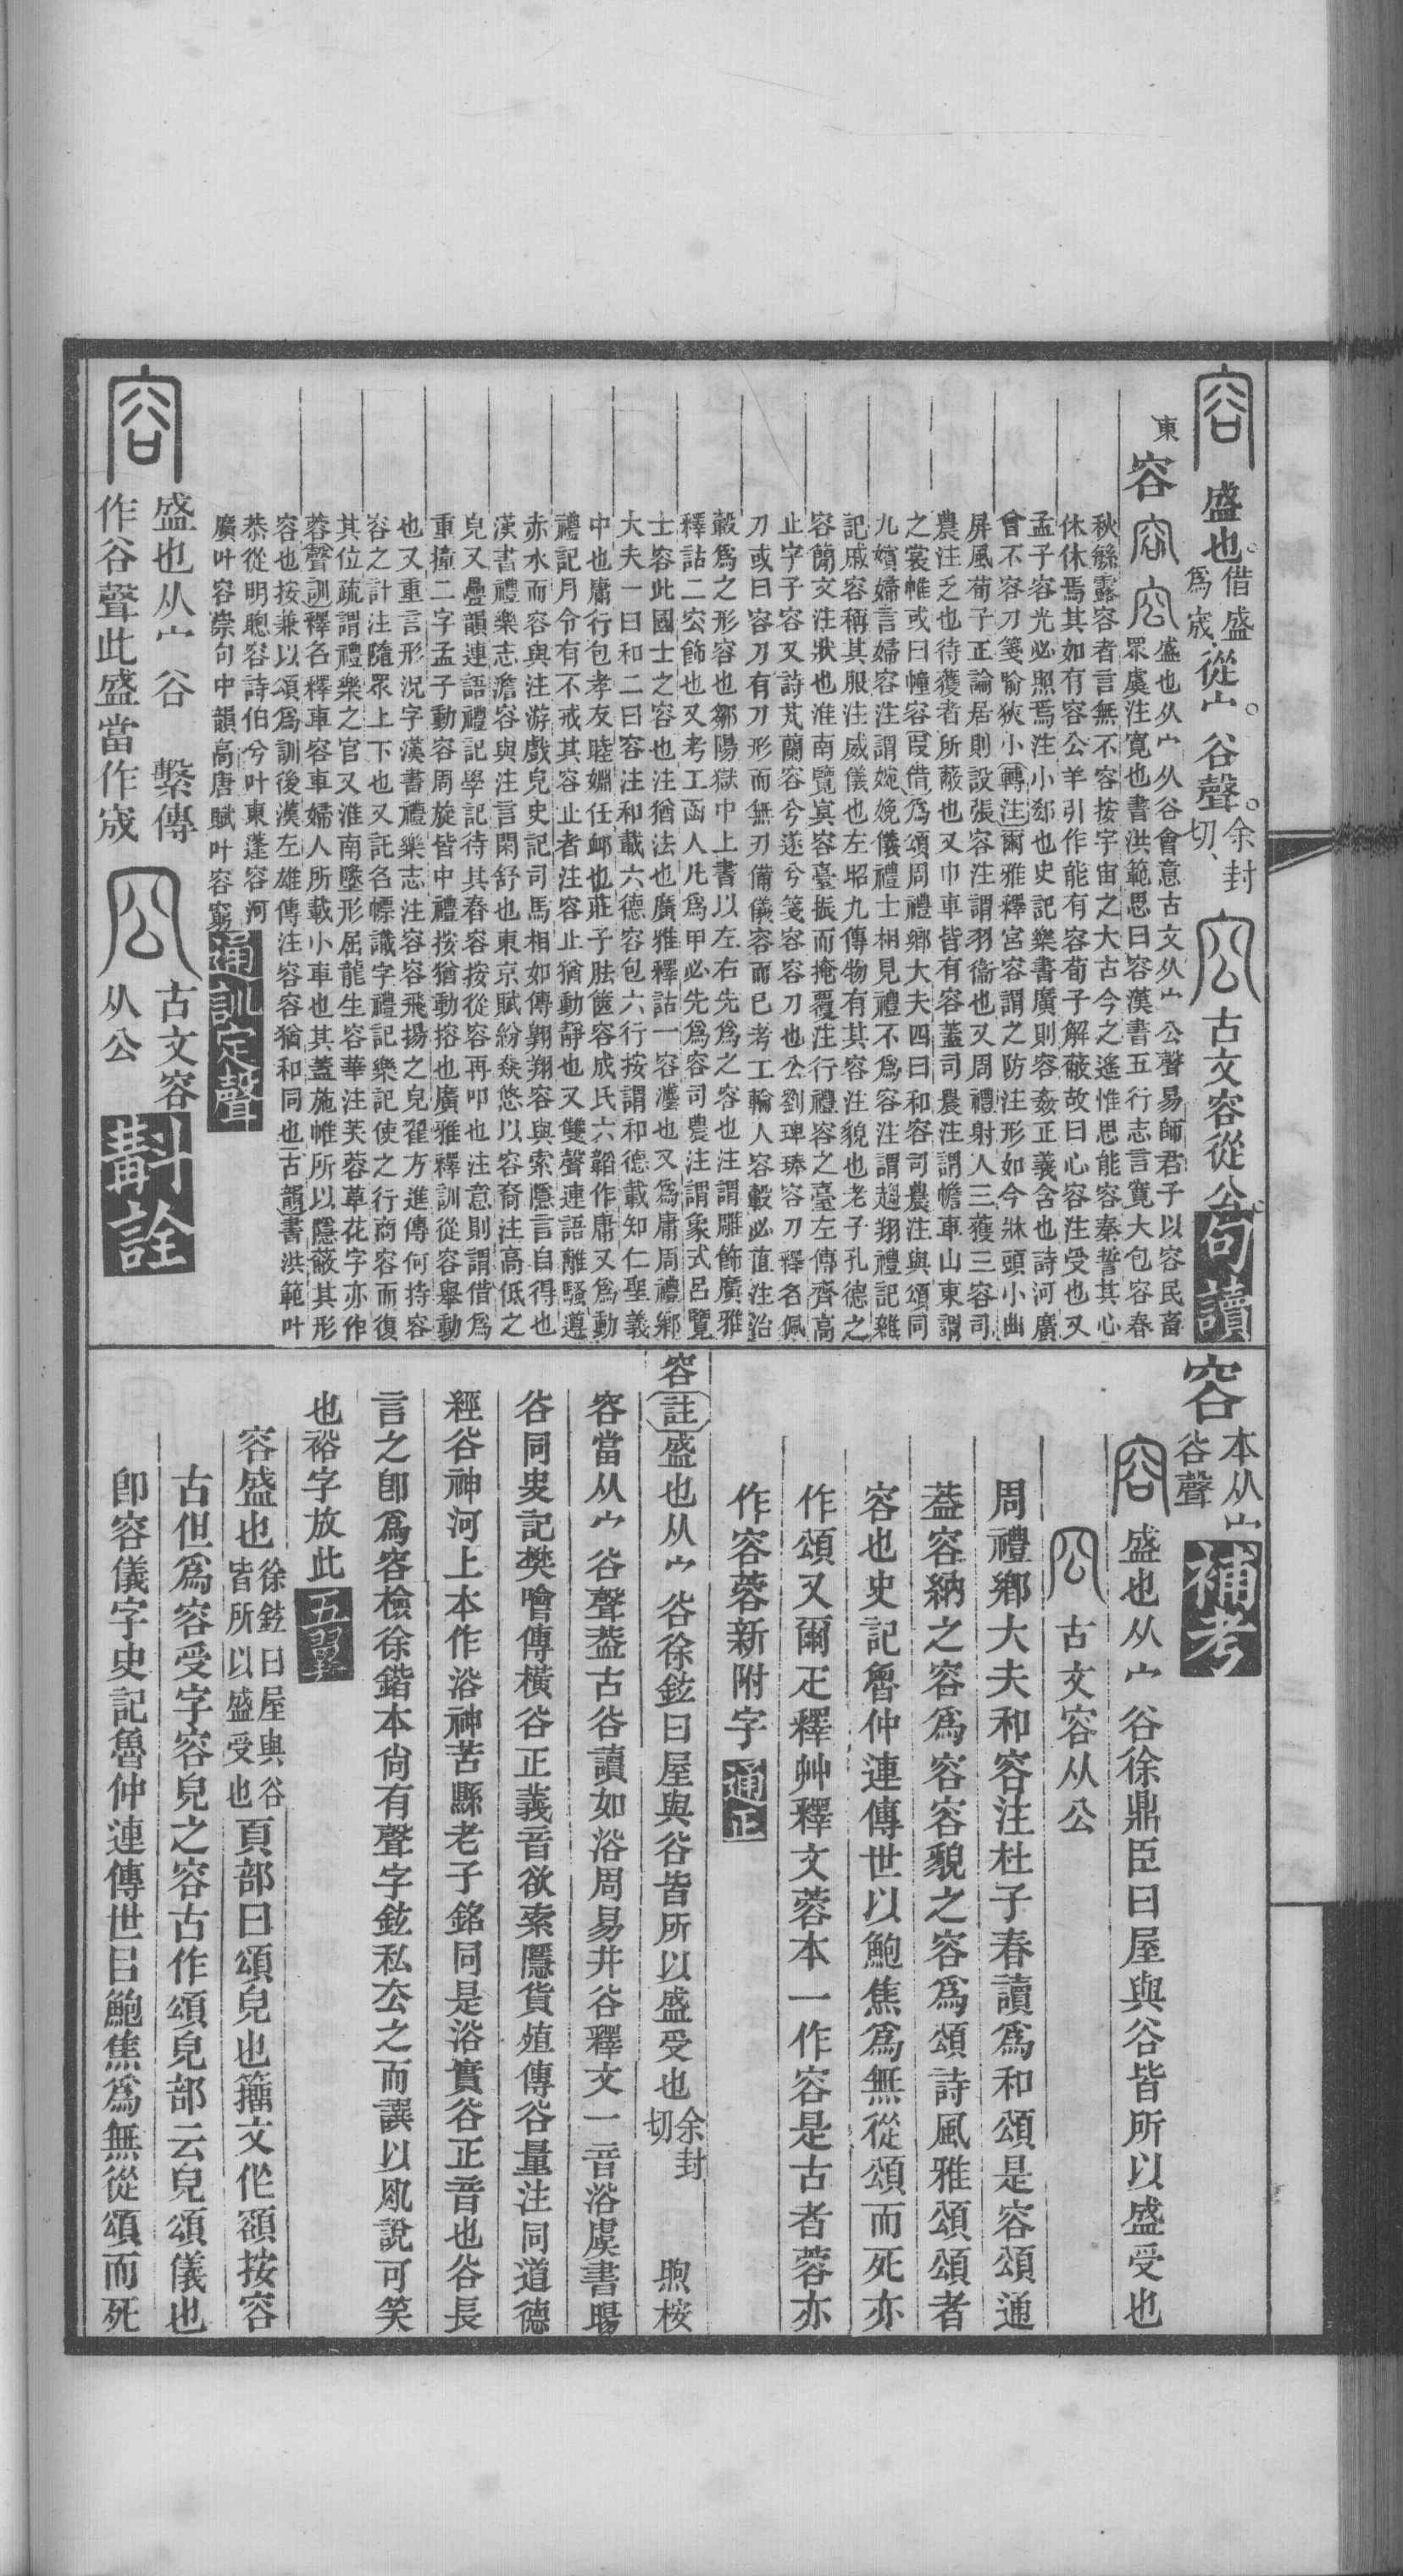 容 盛也借盛爲宬從宀谷聲余封切 古文容從公句讀
東 容 容 㝐 盛也从宀从谷會意古文从宀公聲易師君子以容民畜
眾虞注寬也書洪範思曰容漢書五行志言寬大包容春
秋繇露容者言無不容按宇宙之大古今之遙惟思能容秦誓其心
休休焉其如有容公羊引作能有容荀子解蔽故曰心容注受也又
孟子容光必照焉注小郄也史記樂書廣則容姦正義含也詩河廣
曾不容刀箋喻狹小轉注爾雅釋宮容謂之防注形如今牀頭小曲
屏風荀子正論居則設張容注謂羽衞也又周禮射人三獲三容司
農注乏也待獲者所蔽也又巾車皆有容蓋司農注謂幨車山東謂
之裳帷或曰幢容叚借爲頌周禮鄉大夫四曰和容司農注與頌同
九嬪婦言婦容注謂婉娩儀禮士相見禮不爲容注謂趨翔禮記雜
記戚容稱其服注威儀也左昭九傳物有其容注貌也老子孔德之
容簡文注狀也淮南覽冥容臺振而掩覆注行禮容之臺左傳齊高
止字子容又詩芄蘭容兮遂兮箋容容刀也公劉琫琫容刀釋名佩
刀或曰容刀有刀形而無刃備儀容而已考工輪人容轂必直注治
轂爲之形容也鄒陽獄中上書以左右先爲之容也注謂雕飾廣雅
釋詁二宏飾也又考工函人凡爲甲必先爲容司農注謂象式呂覽
士容此國士之容也注猶法也廣雅釋詁一容灋也又爲庸周禮鄉
大夫一曰和二曰容注和載六德容包六行按謂和德載知仁聖義
中也庸行包孝友睦婣任䘏也莊子胠篋容成氏六韜作庸又爲動
禮記月令有不戒其容止者注容止猶動靜也又雙聲連語離騷遵
赤水而容與注游戲皃史記司馬相如傳翱翔容與索隱言自得也
漢書禮樂志澹容與注言閑舒也東京賦紛焱悠以容裔注高低之
皃又疊韻連語禮記學記待其春容按從容再叩也注意則謂借爲
重撞二字孟子動容周旋皆中禮按猶動搈也廣雅釋訓從容舉動
也又重言形況字漢書禮樂志注容容飛揚之皃翟方進傳何持容
容之計注隨眾上下也又託名幖識字禮記樂記使之行商容而復
其位疏謂禮樂之官又淮南墬形屈龍生容華注芙蓉草花字亦作
蓉聲訓釋名釋車容車婦人所載小車也其蓋施帷所以隱蔽其形
容也按兼以頌爲訓後漢左雄傳注容容猶和同也古韻書洪範叶
恭從明聰容詩伯兮叶東蓬容河
廣叶容崇句中韻高唐賦叶容窮通訓定聲
容 盛也从宀谷 繫傳 古文容
作谷聲此盛當作宬 从公 斠詮
容本从宀谷聲補考
容 盛也从宀谷徐鼎臣曰屋與谷皆所以盛受也
古文容从公
周禮鄉大夫和容注杜子春讀爲和頌是容頌通
葢容納之容爲容容貌之容爲頌詩風雅頌頌者
容也史記魯仲連傳世以鮑焦爲無從頌而死亦
作頌又爾疋釋艸釋文蓉本一作容是古者蓉亦
作容蓉新附字通正
容註盛也从宀谷徐鉉曰屋與谷皆所以盛受也余封切 煦桉
容當从宀谷聲葢古谷讀如浴周易井谷釋文一音浴虞書暘
谷同史記樊噲傳橫谷正義音欲索隱貨殖傳谷量注同道德
經谷神河上本作浴神苦縣老子銘同是浴實谷正音也谷長
言之卽爲容檢徐鍇本尙有聲字鉉私厺之而誤以夙說可笑
也裕字放此五翼
容盛也徐鉉曰屋與谷皆所以盛受也頁部曰頌皃也籀文作額按容
古但爲容受字容皃之容古作頌皃部云皃頌儀也
卽容儀字史記魯仲連傳世㠯鮑焦爲無從頌而死